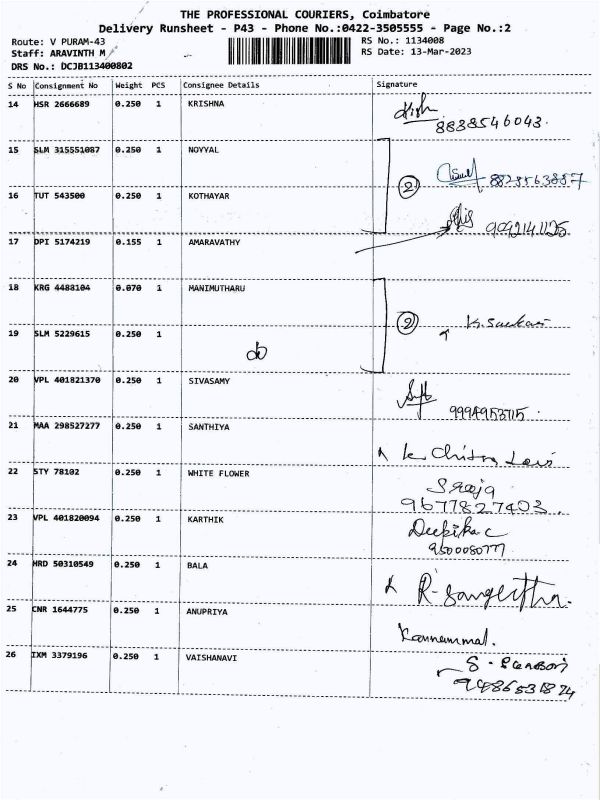 THE PROFESSIONAL COURIERS, Coimbatore
Delivery Runsheet - P43 - Phone No.:0422-3505555 - Page No.:2
Route: V PURAM-43 RS No.: 1134008
Staff: ARAVINTH M RS Date: 13-Mar-2023
DRS No.: DCJB113400802
S No Consignment No Weight PCS Consignee Details Signature
14 HSR 2666689 0.250 1 KRISHNA
8838546043.
15 SLM 315551087 0.250 1 NOYYAL
2
16 TUT 543500 0.250 1 KOTHAYAR
17 DPI 5174219 0.155 1 AMARAVATHY
18 KRG 4488104 0.070 1 MANIMUTHARU
2
19 SLM 5229615 0.250 1
20 VPL 401821370 0.250 1 SIVASAMY
21 MAA 298527277 0.250 1 SANTHIYA
22 STY 78102 0.250 1 WHITE FLOWER
9677827403.
23 VPL 401820094 0.250 1 KARTHIK Deepika C
24 HRD 50310549 0.250 1 BALA
R-Sangeetha.
25 CNR 1644775 0.250 1 ANUPRIYA
Kannammal.
26 IXM 3379196 0.250 1 VAISHANAVI